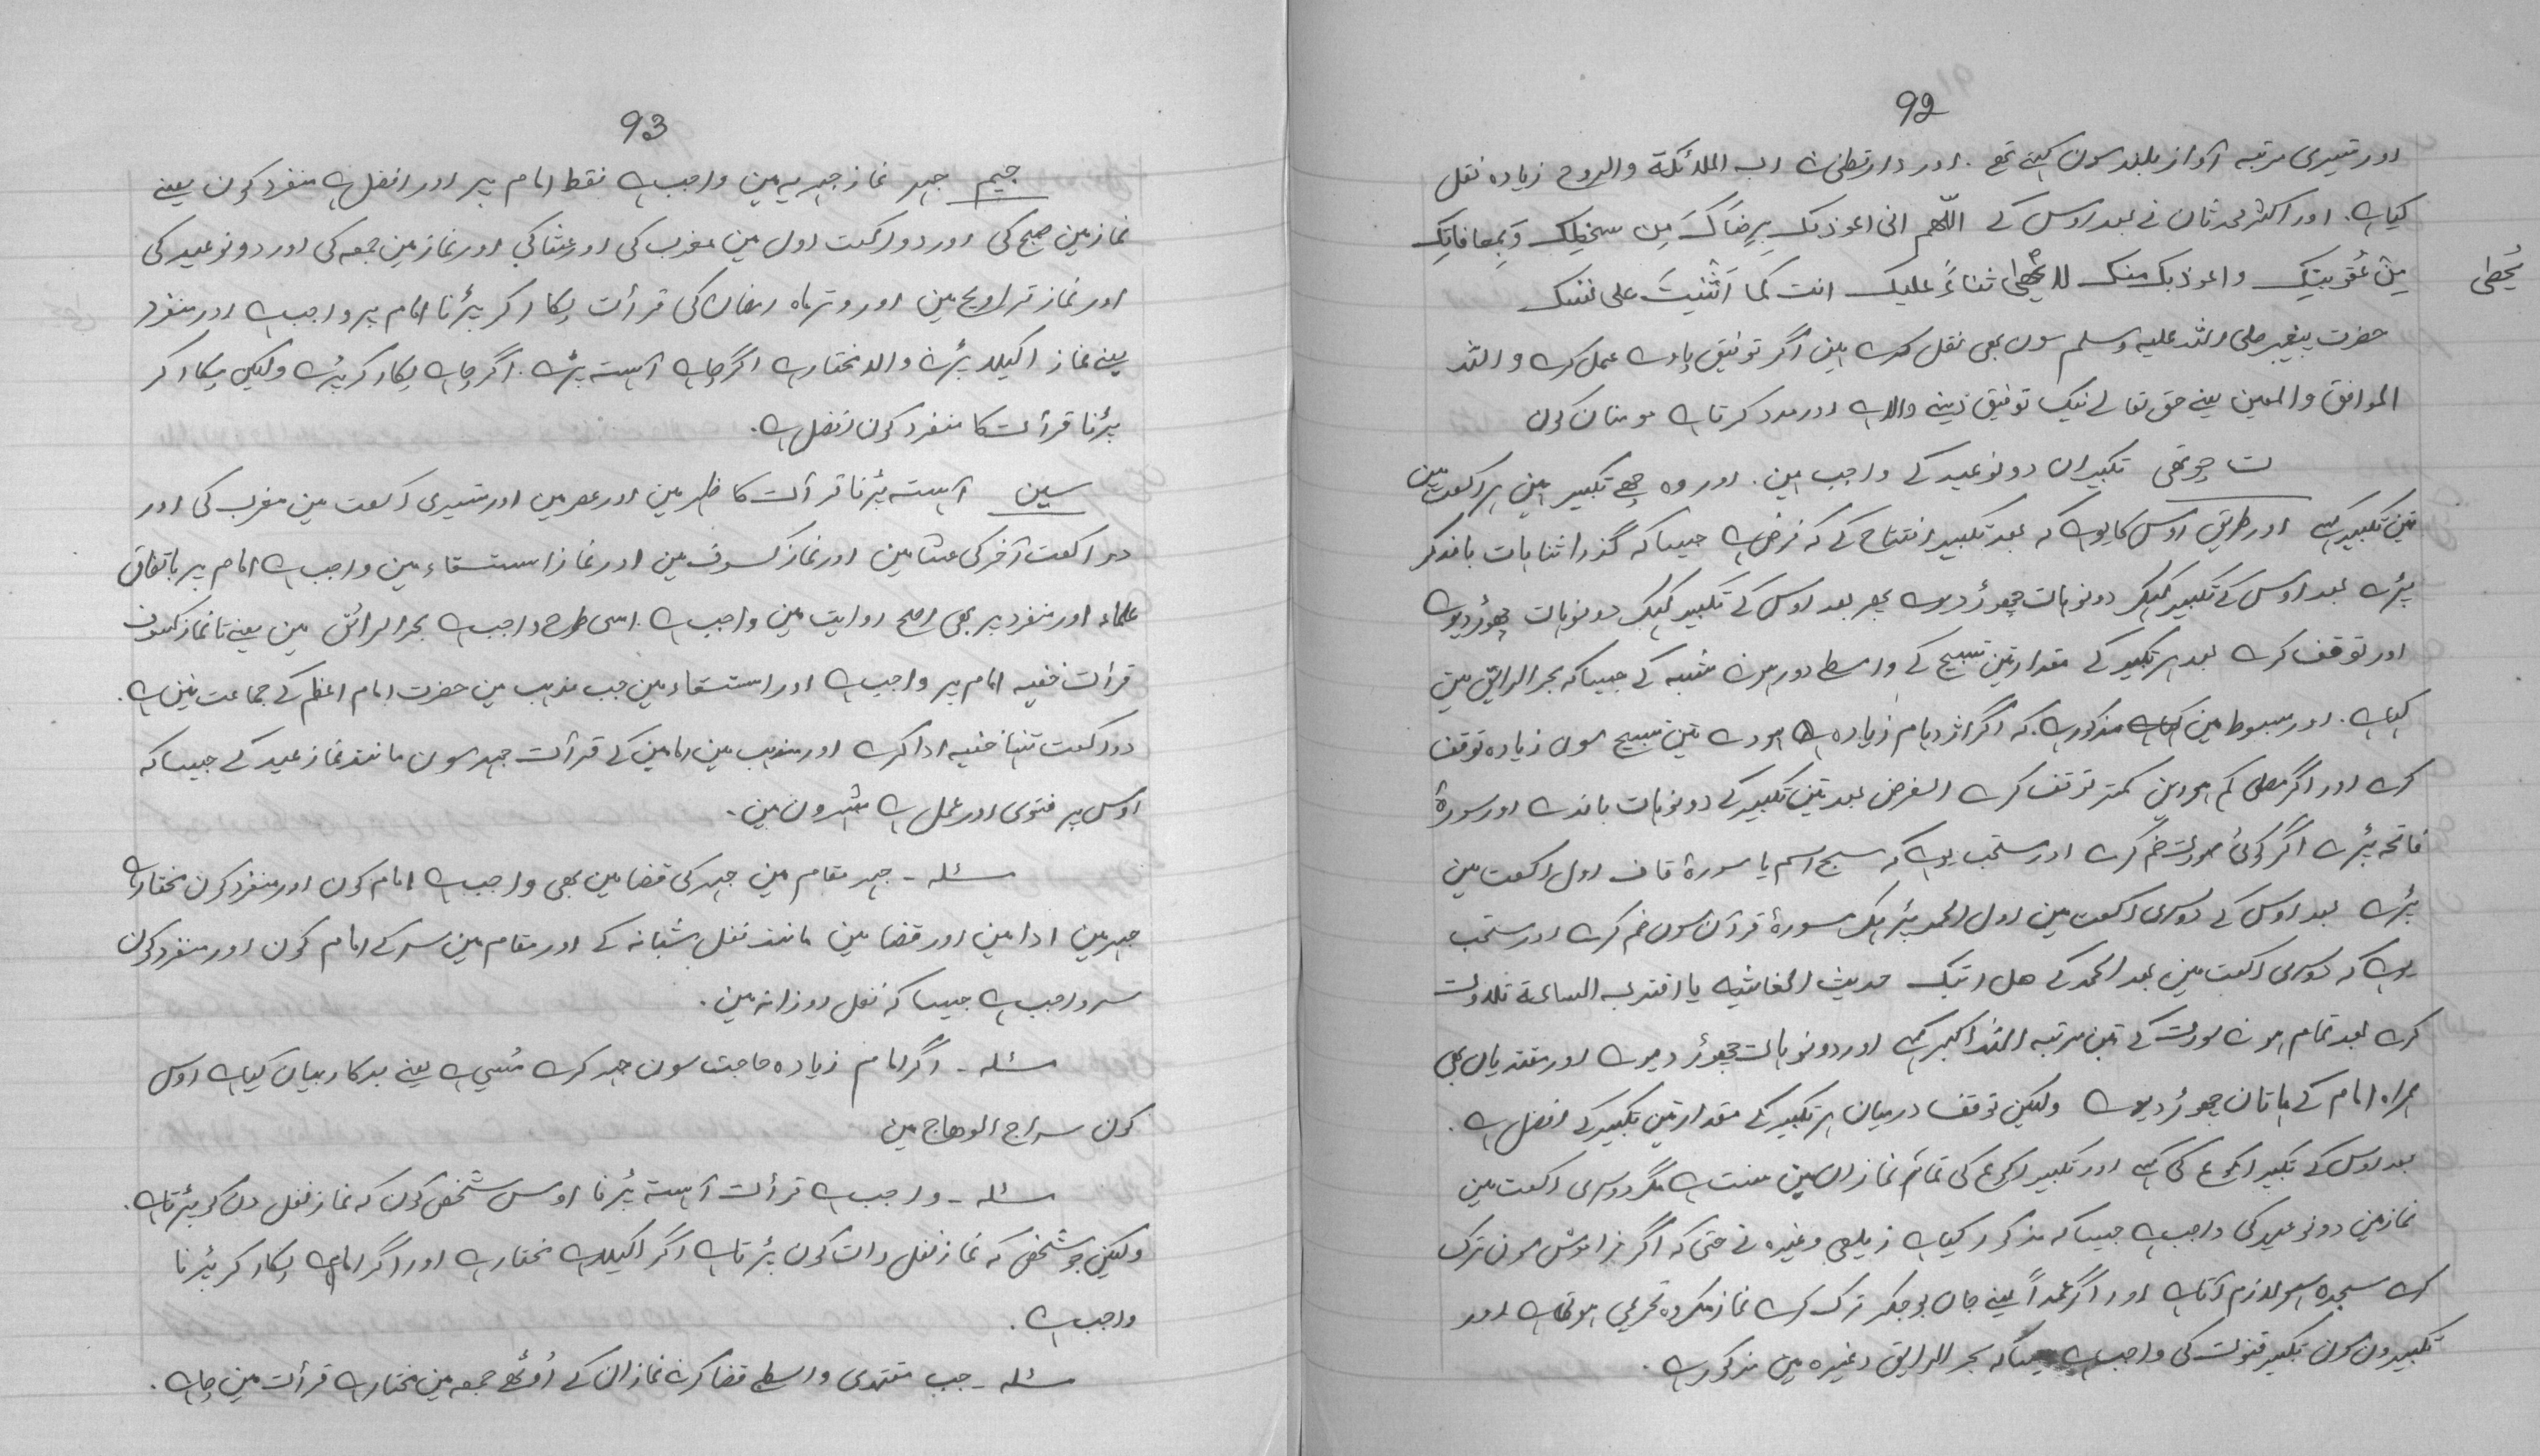 92
اور تیسری مرتبہ آواز بلند سون کہتے تھے. اور دارقطنی نے رب الملائکة والروح زیادہ نقل
کیا ہے. اور اکثر محدثان نے بعد اوس کے اللّٰھم انی اعوذ بک بِرِضَاکَ مِن سخطِکَ وَبِمعافاتِک
مِنْ عُقُوبَتِکَ واعوذ بک منک لا ثناءً علیک انت کما اَثْنَیتَ علی نفسک
یُحصٰی
حضرت پیغمبر صلی اللہ علیہ وسلم سون بھی نقل کرے ہین اگر توفیق پاوے عمل کرے واللہ
الموافق والمعین یعنے حق تعالے نیک توفیق دینے والا ہے اور مدد کرتا ہے مومنان کون
ت چوتھی تکبیران دونو عید کے واجب ہین. اور وہ چھے تکبیر ہین ہر رکعت مین
تین تکبیر کہے اور طریق اوس کا یو ہے کہ بعد تکبیر افتتاح کے کہ فرض ہے جیسا کہ گذرا ثنا ہات باندکر
پڑے بعد اوس کے تکبیر کہکر دونو ہات چھوڑ دیوے پھر بعد اوس کے تکبیر کہکر دونو ہات چھوڑ دیوے
اور توقف کرے بعد ہر تکبیر کے مقدار تین تسبیح کے واسطے دور ہونے شبہ کے جیسا کہ بحر الرایق مین
کہا ہے. اور مبسوط مین مذکور ہے. کہ اگر اژدہام زیادہ ہووے تین تسبیح سون زیادہ توقف
کرے اور اگر مصلی کم ہووین کمتر توقف کرے الغرض بعد تین تکبیر کے دونو ہات باندے اور سورۃ
فاتحہ پڑے اگر کوئی سورت ضم کرے اور مستحب یو ہے کہ سبح اسم یا سورۃ قاف اول رکعت مین
پڑے بعد اوس کے دوسری رکعت مین اول الحمد پڑ ایک سورۃ قرآن سون ضم کرے اور مستحب
یو ہے کہ دوسری رکعت مین بعد الحمد کے ھل اتٰک حدیث الغاشیہ یا اقتربة الساعة تلاوت
کرے بعد تمام ہونے سورت کے تین مرتبہ اللہ اکبر کہے اور دونو ہات چھوڑ دیوے اور مقتدیان بھی
ہمراہ امام کے ہاتان چھوڑ دیوے ولیکن توقف درمیان ہر تکبیر کے مقدار تین تکبیر کے افضل ہے.
بعد اوس کے تکبیر رکوع کی کہے اور تکبیر رکوع کی تمام نمازان مین سنت ہے مگر دوسری رکعت مین
نماز مین دونو عید کی واجب ہے جیسا کہ مذکور کیا ہے زیلعی وغیرہ نے حتی کہ اگر فراموش سون ترک
کرے سجدہ سہو لازم آتا ہے اور اگر عمداً یعنے جان بوجکر ترک کرے نماز مکروہ تحریمی ہوتا ہے اور
تکبیرون سون تکبیر قنوت کی واجب ہے جیسا کہ بحر الرایق وغیرہ مین مذکور ہے.
93
جیم جہر نماز جہریہ مین واجب ہے فقط امام پر اور افضل ہے منفرد کون یعنے
نماز مین صبح کی اور دو رکعت اول مین مغرب کی اور عشا کی اور نماز مین جمعہ کی اور دونو عید کی
اور نماز تراویح مین اور وتر ماہ رمضان کی قرأت پکار کر پڑنا امام پر واجب ہے اور منفرد
یعنے نماز اکیلا پڑنے والا مختار ہے اگر چاہے آہستہ پڑے. اگر چاہے پکار کر پڑے ولیکن پکار کر
پڑنا قرأت کا منفرد کون افضل ہے.
سین آہستہ پڑنا قرأت کا ظہر مین اور عصر مین اور تیسری رکعت مین مغرب کی اور
دو رکعت آخر کی عشا مین اور نماز کسوف مین اور نماز استسقاء مین واجب ہے امام پر باتفاق
علماء اور منفرد پر بھی اصح روایت مین واجب ہے. اسی طرح واجب ہے بحر الرائق مین یعنے تا نماز کسوف
قرأت خفیہ امام پر واجب ہے اور استسقاء مین جب مذہب مین حضرت امام اعظم کے جماعت نین ہے.
دو رکعت تنہا خفیہ ادا کرے اور مذہب مین امامین کے قرأت جہر سون مانند نماز عید کے جیسا کہ
اوس پر فتوی اور عمل ہے شہرون مین.
مسئلہ - جہر مقام مین جہر کی قضا مین بھی واجب ہے امام کون اور منفرد کون مختار ہے
جہر مین ادا مین اور قضا مین مانند نفل شبانہ کے اور مقام مین سر کے امام کون اور منفرد کون
سر واجب ہے جیسا کہ نفل روزانہ مین.
مسئلہ - اگر امام زیادہ حاجت سون جہر کرے مُسِي ہے یعنے بدکار بیان کیا ہے اوس
کون سراج الوھاج مین
مسئلہ - واجب ہے قرأت آہستہ پڑنا اوس شخص کون کہ نماز نفل دن کو پڑتا ہے.
ولیکن جو شخص کہ نماز نفل رات کون پڑتا ہے اگر اکیلا ہے مختار ہے اور اگر امام ہے پکار کر پڑنا
واجب ہے.
مسئلہ - جب مقتدی واسطے قضا کرنے نمازان کے اُوٹھے جمعہ مین مختار ہے قرأت مین چاہے.